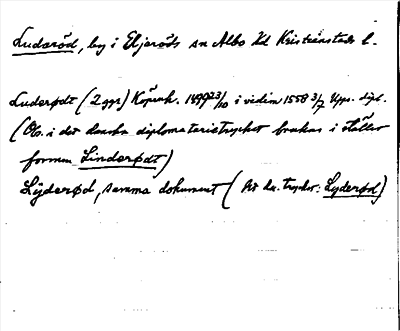 Luderöd, by i Eljeröds sn Albo hd Kristianstads l.
Luderødt (2 ggr) Köpenh. 1499 23/10 i vidim 1558 3/7 Upps. dipl.
(Obs. i det danska diplomatarietrycket brukas i stället
formen Linderødt)
Lÿderød, samma dokument ( 
tryckt: Lyderød)